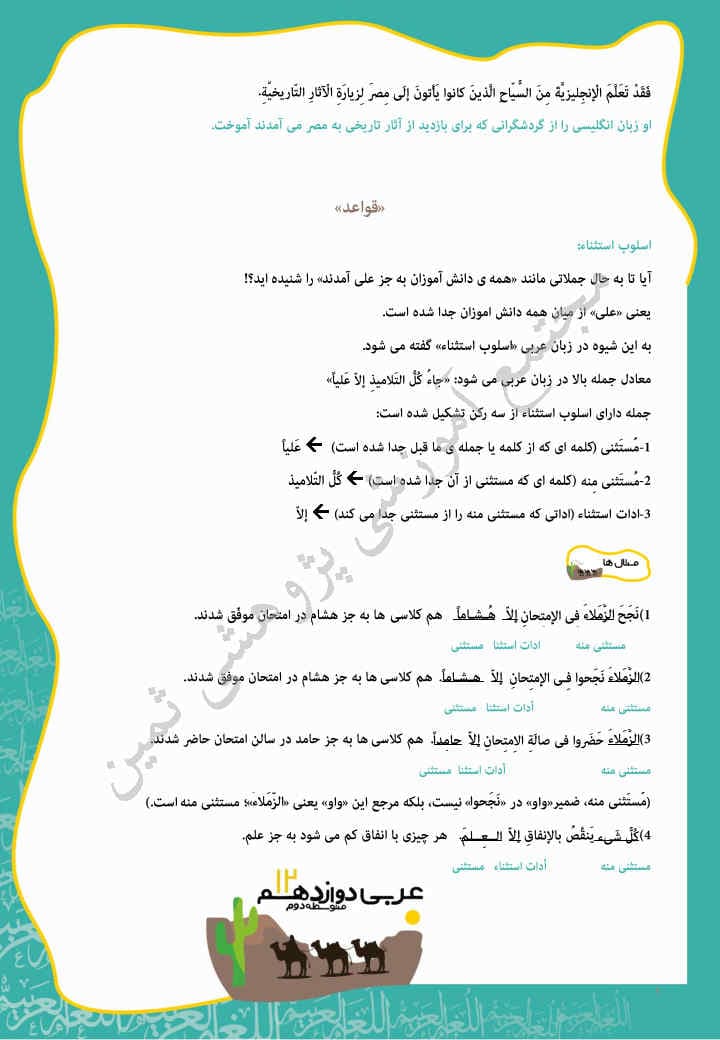 فَقَدْ تَعَلَّمَ الْإنجِليزيَّةَ مِنَ السُّيّاحِ الَّذينَ كانوا يَأتونَ إلَی مِصرَ لِزيارَةِ الْآثارِ التّاريخيَّةِ.
او زبان انگلیسی را از گردشگرانی که برای بازدید از آثار تاریخی به مصر می آمدند آموخت.
«قواعد»
اسلوب استثناء:
آیا تا به حال جملاتی مانند «همه ی دانش آموزان به جز علی آمدند» را شنیده اید؟!
یعنی «علی» از میان همه دانش اموزان جدا شده است.
به این شیوه در زبان عربی «اسلوب استثناء» گفته می شود.
معادل جمله بالا در زبان عربی می شود: «جاءُ کُلُّ التَلامیذِ إلاّ عَلیاً»
جمله دارای اسلوب استثناء از سه رکن تشکیل شده است:
1-مُستَثنی (کلمه ای که از کلمه یا جمله ی ما قبل جدا شده است) ← عَلیاً
2-مُستَثنی مِنه (کلمه ای که مستثنی از آن جدا شده است) ← کُلُّ التّلامیذ
3-ادات استثناء (اداتی که مستثنی منه را از مستثنی جدا می کند) ← إلاّ
مثال ها
1)نَجَحَ الزُّمَلاءَ فِی الإمتِحانِ إلاّ هُـشـاماً هم کلاسی ها به جز هشام در امتحان موفّق شدند.
مستثنی منه ادات استثنا مستثنی
2)الزُّمَلاءَ نَجَحوا فِـی الإمتِحانِ إلاّ هـشـاماً. هم کلاسی ها به جز هشام در امتحان موفق شدند.
مستثنی منه أدات استثنا مستثنی
3)الزُّمَلاءَ حَضَروا فی صالَةِ الامتِحانِ إلاّ حامِداً. هم کلاسی ها به جز حامد در سالن امتحان حاضر شدند.
مستثنی منه أدات استثنا مستثنی
(مُستَثنی منه، ضمیر«واو» در «نَجَحوا» نیست، بلکه مرجع این «واو» یعنی «الزّمَلاءَ»؛ مستثنی منه است.)
4)کُلُّ شَیء یَنقُصُ بالإنفاقِ إلاّ الـعِـلمَ. هر چیزی با انفاق کم می شود به جز علم.
مستثنی منه أدات استثناء مستثنی
مجتمع آموزشی پژوهشی ثمین
عربی دوازدهم ۱۲
متوسطه دوم
اللغة العربية